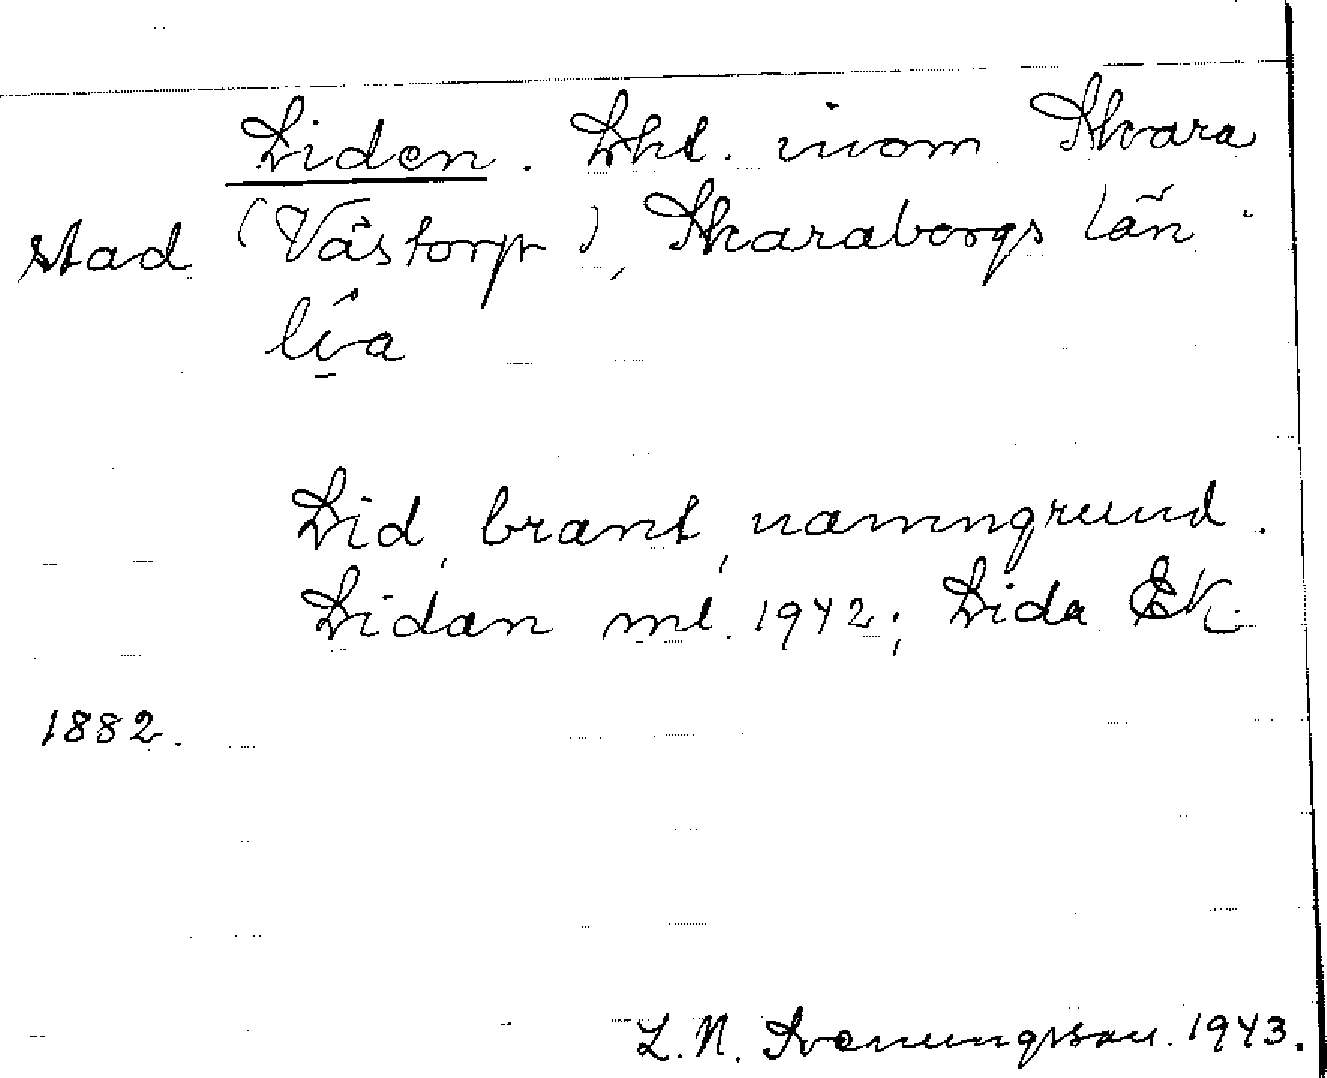 Liden. Lht. inom Skara
stad (Västorp), Skaraborgs län.
lia
Lid, brant, namngrund.
Lidan ml. 1942; Lida EK.
1882.
L. N. Svenungsson. 1943.